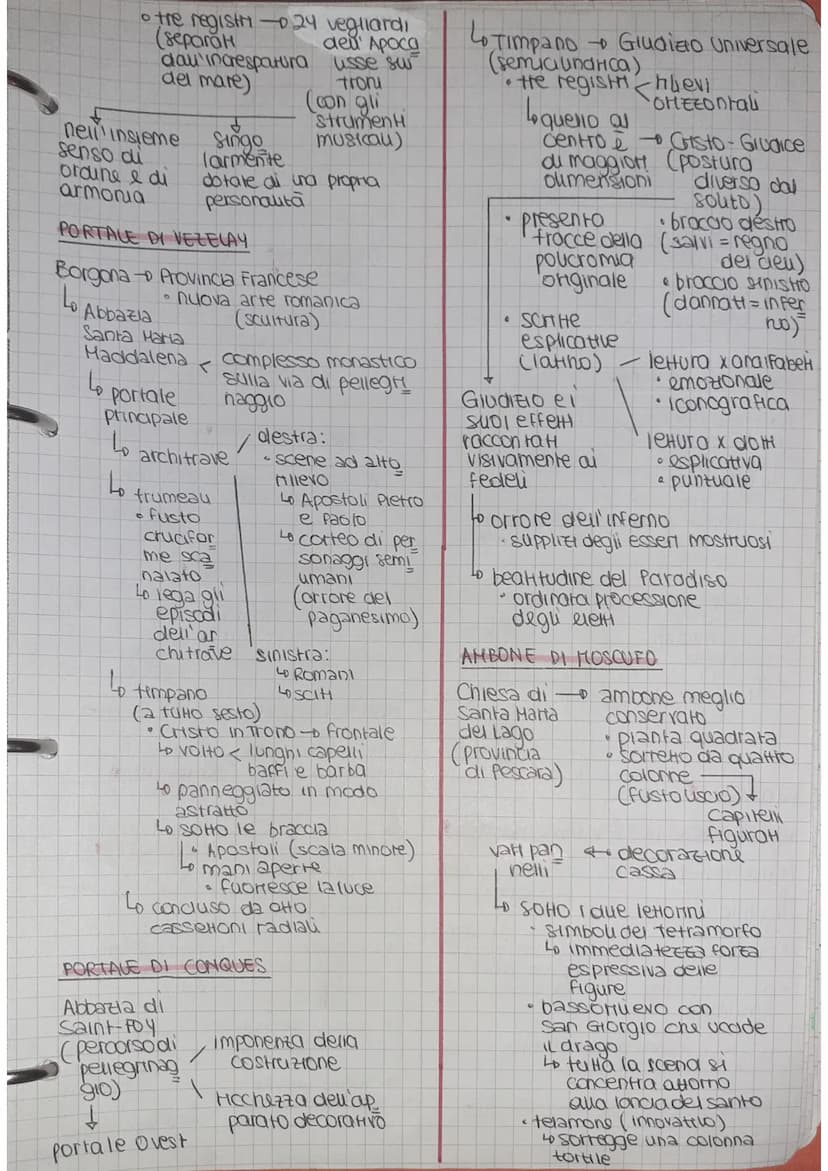 • tre registri → 24 vegliardi
(separati dell'Apoca
dall'increspatura lisse sui
del mare) troni
(con gli
strumenti
musicali)
nell'insieme singo
senso di larmente
ordine e di dotate di una propria
armonia personalità
PORTALE DI VEZELAY
Borgona → Provincia Francese
• nuova arte romanica
(scultura)
↳ Abbazia
Santa Maria
Maddalena < complesso monastico
sulla via di pellegri
naggio
↳ portale
principale
↳ architrave / destra:
• scene ad alto
rilievo
↳ Apostoli Pietro
e Paolo
↳ corteo di per
sonaggi semi
umani
(orrore del
paganesimo)
↳ trumeau
• fusto
crucifor
me sca
nalato
↳ lega gli
episodi
dell'ar
chitrave
sinistra:
↳ Romani
↳ Sciti
↳ timpano
(a tutto sesto)
• Cristo in trono → frontale
↳ volto < lunghi capelli
baffi e barba
↳ panneggiato in modo
astratto
↳ sotto le braccia
↳ Apostoli (scala minore)
↳ mani aperte
• fuoriesce la luce
↳ concluso da otto
cassettoni radiali
PORTALE DI CONQUES
Abbazia di
Saint-Foy
(percorso di / imponenza della
pellegrinag costruzione
gio) \ ricchezza dell'ap
parato decorativo
↓
portale ovest
↳ Timpano → Giudizio Universale
(semicilindrica)
• tre registri < rilievi
orizzontali
↳ quello al
centro è → Cristo-Giudice
di maggiori (postura
dimensioni diverso dal
solito)
• braccio destro
(salvi = regno
dei cieli)
• braccio sinistro
(dannati = infer
no)
• presenta
tracce della
policromia
originale
• scritte
esplicative
(latino) — lettura x analfabeti
• emozionale
• iconografica
lettura x dotti
• esplicativa
• puntuale
Giudizio e i
suoi effetti
raccontati
visivamente ai
fedeli
↳ orrore dell'inferno
• supplizi degli esseri mostruosi
↳ beatitudine del Paradiso
• ordinata processione
degli eletti
AMBONE DI MOSCUFO
Chiesa di → ambone meglio
Santa Maria conservato
del Lago • pianta quadrata
(provincia • sorretto da quattro
di Pescara) colonne
(fusto liscio) ↓
capitelli
figurati
vari pan ← decorazione
nelli cassa
↳ sotto i due lettorini
• simboli del Tetramorfo
↳ immediatezza forza
espressiva delle
figure
• bassorilievo con
San Giorgio che uccide
il drago
↳ tutta la scena si
concentra attorno
alla lancia del santo
• telamone (innovativo)
↳ sorregge una colonna
tortile